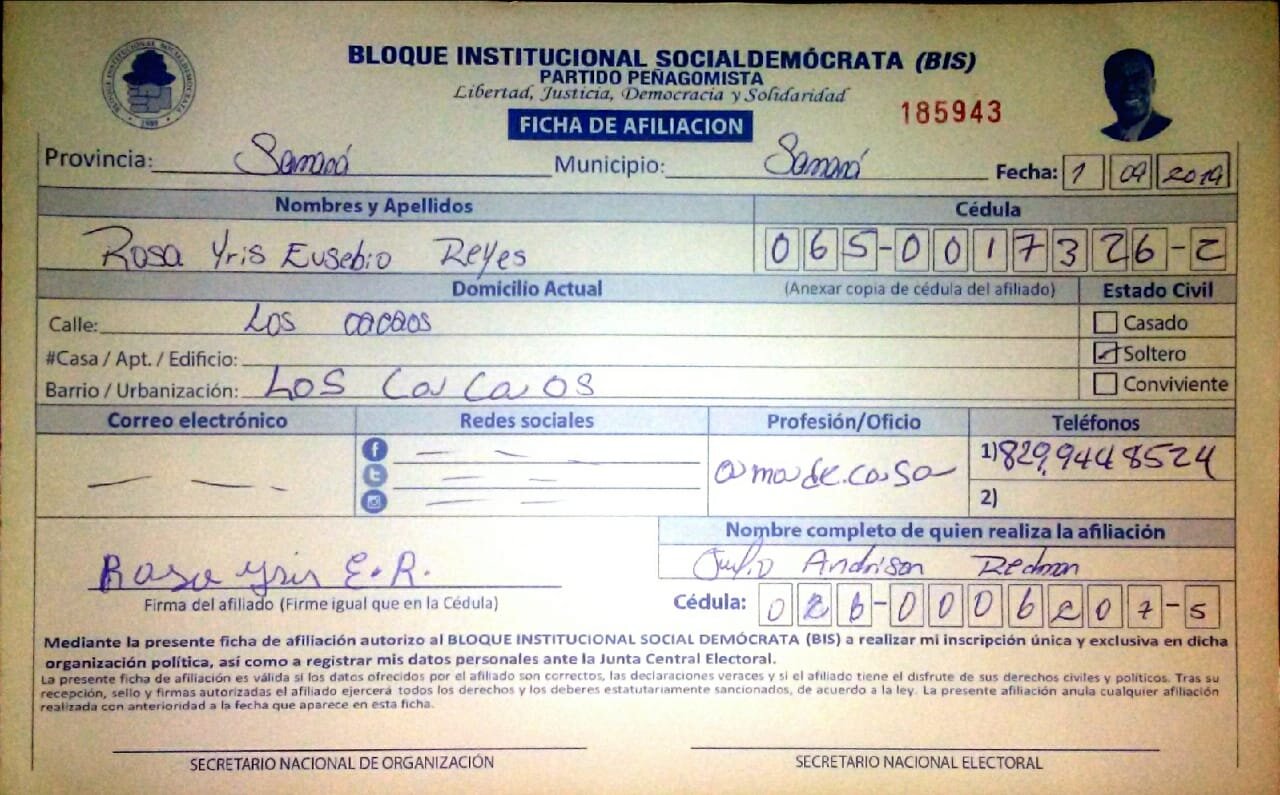 BLOQUE INSTITUCIONAL SOCIALDEMÓCRATA (BIS)
PARTIDO PEÑAGOMISTA
Libertad, Justicia, Democracia y Solidaridad
185943
FICHA DE AFILIACION
Provincia: Samaná Municipio: Samaná Fecha: 1 09 2019
Nombres y Apellidos Cédula
Rosa Yris Eusebio Reyes 065-0017326-2
Domicilio Actual (Anexar copia de cédula del afiliado) Estado Civil
Calle: Los cacaos Casado
#Casa / Apt. / Edificio: Soltero
Barrio / Urbanización: Los Cacaos Conviviente
Correo electrónico Redes sociales Profesión/Oficio Teléfonos
ama de.casa 1) 829,9448524
2)
Nombre completo de quien realiza la afiliación
Rosa yris E.R. Julio Andrison Redman
Firma del afiliado (Firme igual que en la Cédula) Cédula: 026-0006207-5
Mediante la presente ficha de afiliación autorizo al BLOQUE INSTITUCIONAL SOCIAL DEMÓCRATA (BIS) a realizar mi inscripción única y exclusiva en dicha
organización política, así como a registrar mis datos personales ante la Junta Central Electoral.
La presente ficha de afiliación es válida si los datos ofrecidos por el afiliado son correctos, las declaraciones veraces y si el afiliado tiene el disfrute de sus derechos civiles y políticos. Tras su
recepción, sello y firmas autorizadas el afiliado ejercerá todos los derechos y los deberes estatutariamente sancionados, de acuerdo a la ley. La presente afiliación anula cualquier afiliación
realizada con anterioridad a la fecha que aparece en esta ficha.
SECRETARIO NACIONAL DE ORGANIZACIÓN SECRETARIO NACIONAL ELECTORAL